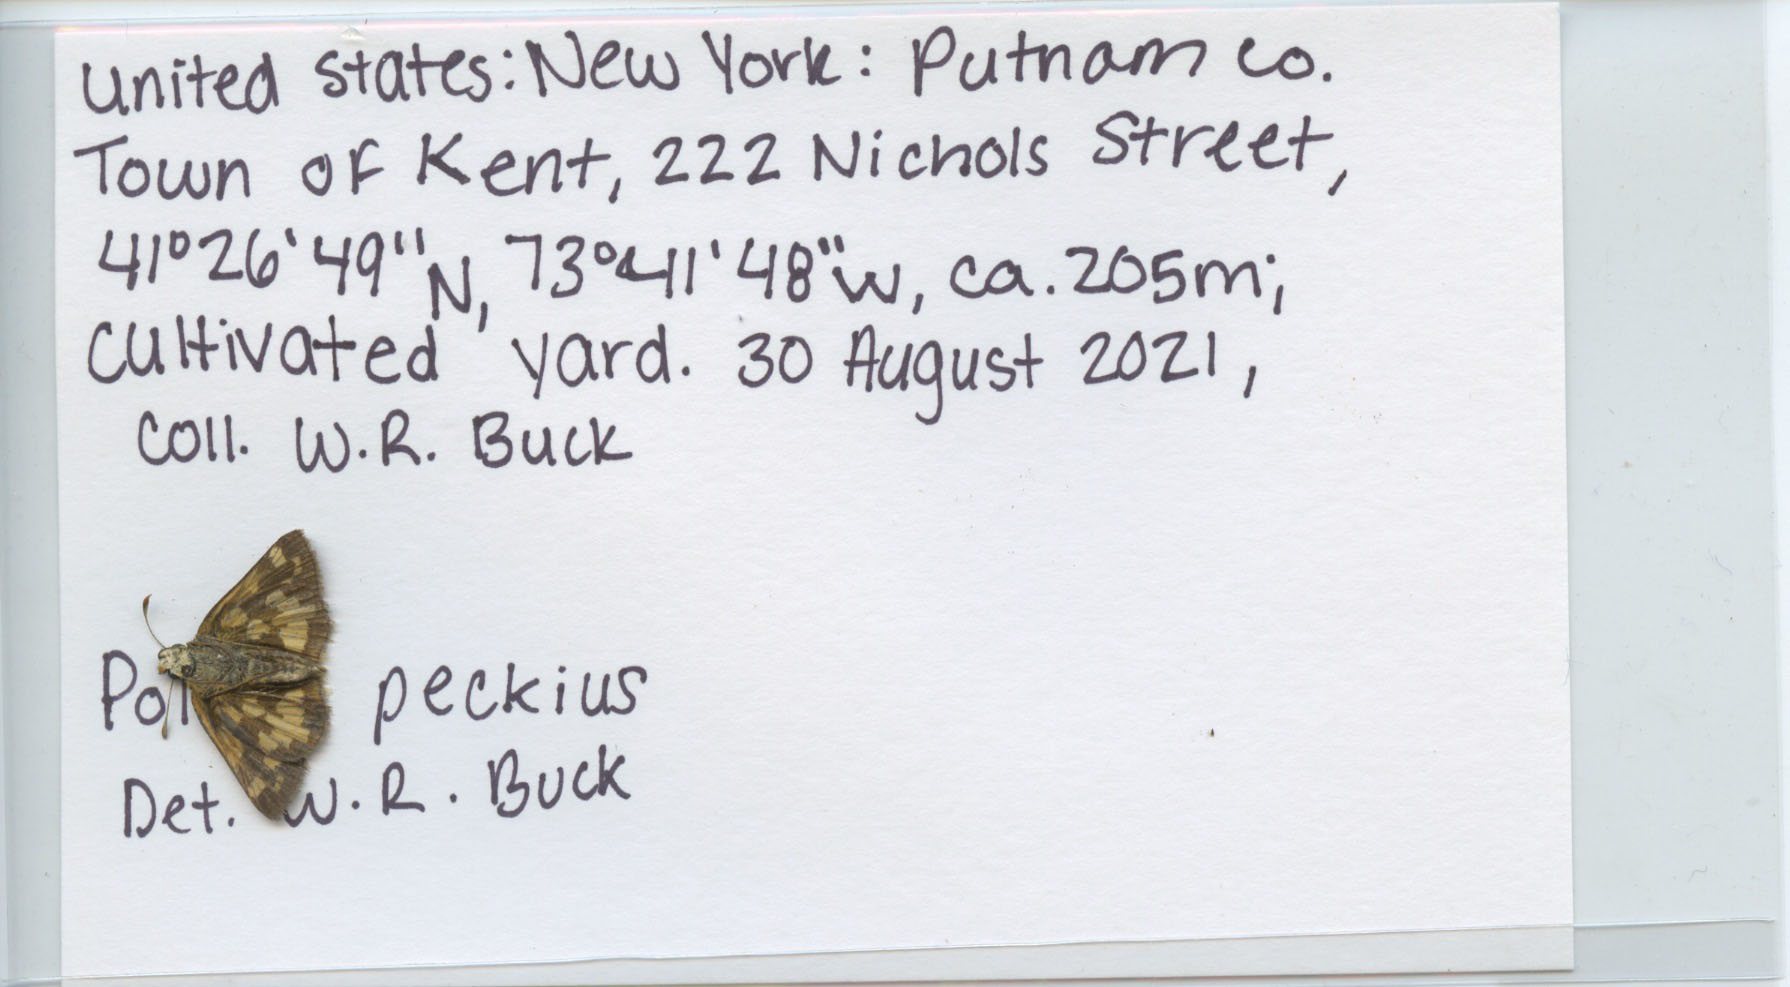 United States: New York: Putnam Co.
Town of Kent, 222 Nichols Street,
41°26'49"N, 73°41'48"W, ca. 205m;
Cultivated yard. 30 August 2021,
Coll. W.R. Buck
peckius
Det. W.R. Buck